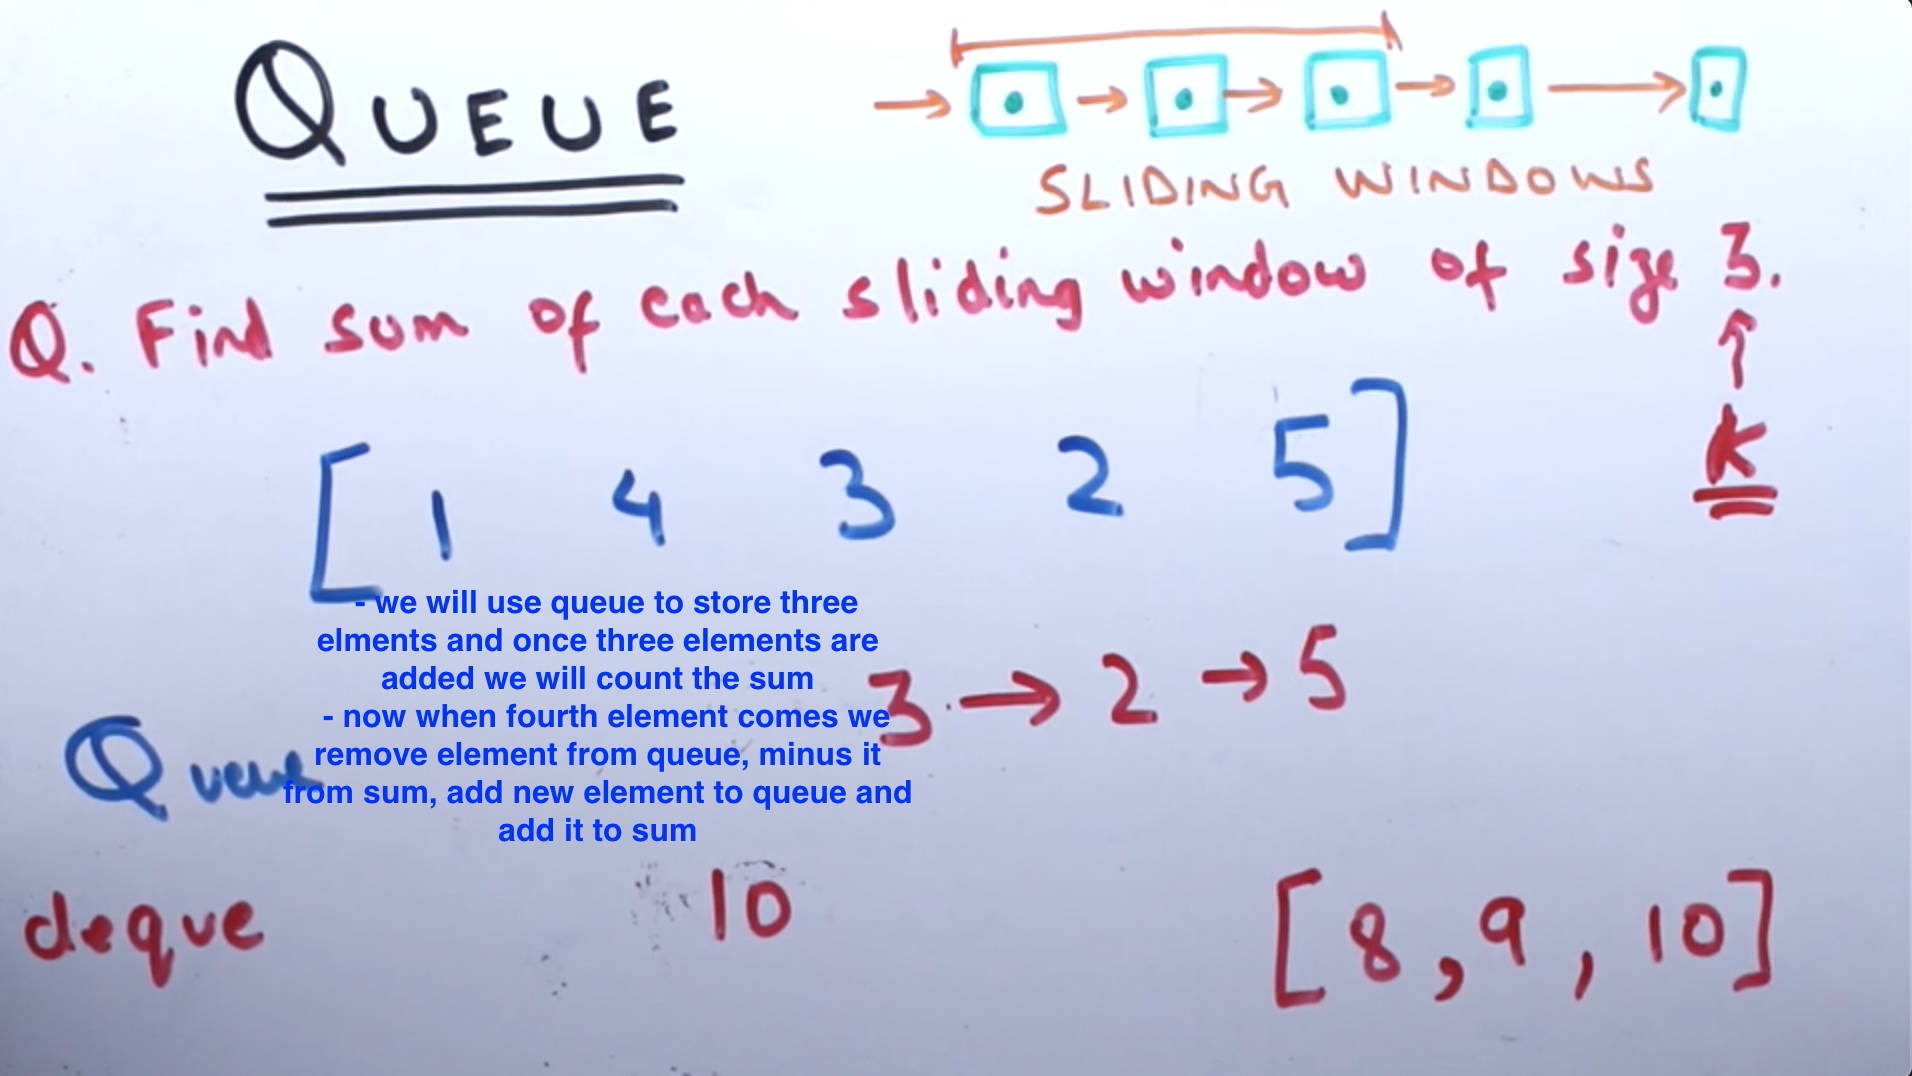 QUEUE
SLIDING WINDOWS
Q. Find sum of each sliding window of size 3.
↑
K
[ 1 4 3 2 5 ]
- we will use queue to store three
elments and once three elements are
added we will count the sum
- now when fourth element comes we
remove element from queue, minus it
from sum, add new element to queue and
add it to sum
3 → 2 → 5
Queue
deque
10
[ 8 , 9 , 10 ]